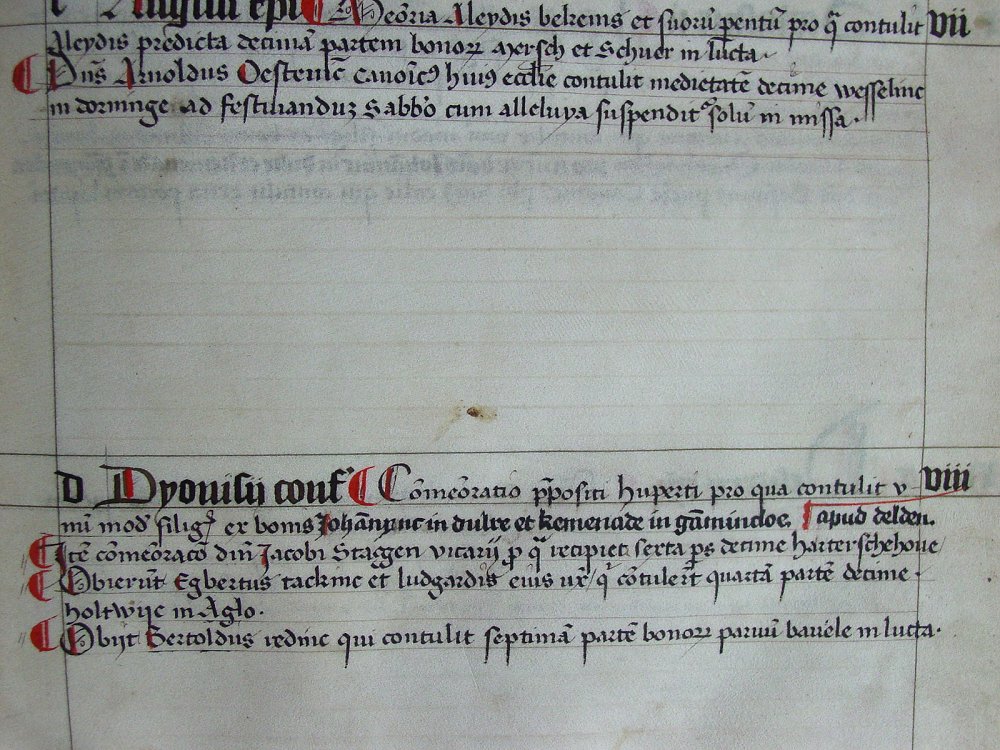 c Augusti epi Meōria Aleydis belrems et suorū pentū pro q̄ contulit vii
Aleydis predicta decimā partem bonoꝝ mersch et Schuer in lucta.
Dn̄s Arnoldus Oestenic̄ canoīcꝯ huiꝰ eccl̄ie contulit medietatē decime wesselinc
in dorninge ad festiuanduz Sabbō cum alleluya suspendit᷑ solū in missa.
D Dyonisii conf̄ Cōmeōratio p̄positi huperti pro qua contulit v viii
mī mod̄ siliḡ ex bonis Johan̄ in dulre et kemenade in apud delden.
Itē cōmeōracō dīn Jacobi Staggen vicarij p̄ q̄ recipiet sexta ps decime harterschehoue
Obierūt Egbertus tackinc et ludgardis eius vx̄ q̄ cōtuler̄t quartā partē decime
holtwijc in Aglo.
Obijt Bertoldus redinc qui contulit septimā partē bonoꝝ paruū bauele in lucta.